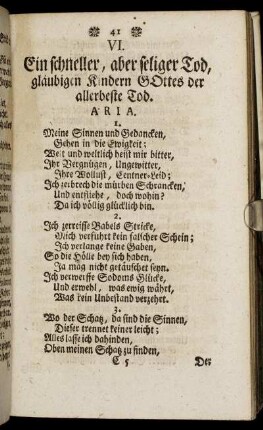 41
VI.
Ein schneller, aber seliger Tod,
gläubigen Kindern GOttes der
allerbeste Tod.
ARIA.
1.
Meine Sinnen und Gedancken,
Gehen in die Ewigkeit:
Welt und weltlich heißt mir bitter,
Ihr Vergnügen, Ungewitter,
Ihre Wollust, Centner-Leid;
Ich zerbrech die mürben Schrancken,
Und entfliehe, doch wohin?
Da ich völlig glücklich bin.
2.
Ich zerreisse Babels Stricke,
Mich verführt kein falscher Schein;
Ich verlange keine Gaben,
So die Hölle bey sich haben,
Ja mag nicht getäuschet seyn.
Ich verwerffe Sodoms Glücke,
Und erwehl, was ewig währt,
Was kein Unbestand verzehrt.
3.
Wo der Schatz, da sind die Sinnen,
Dieser trennet keiner leicht;
Alles lasse ich dahinden,
Oben meinen Schatz zu finden,
C 5 Der